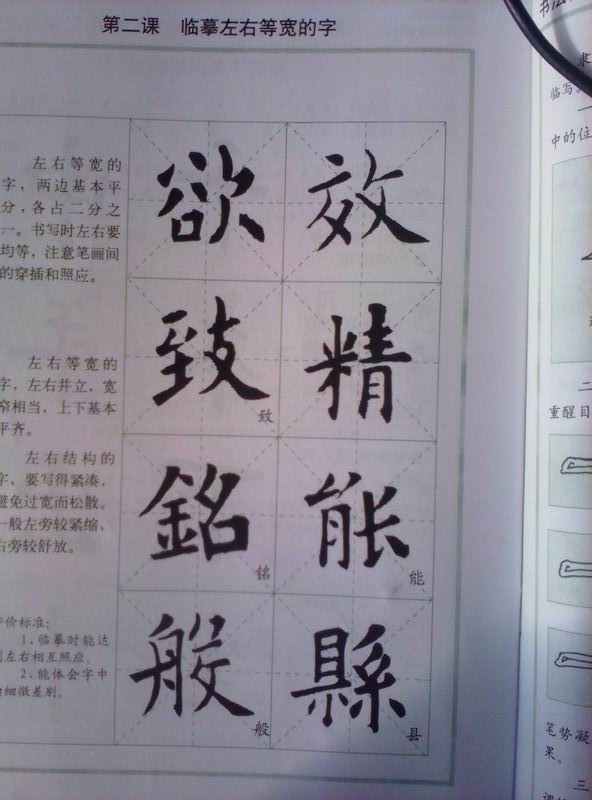 第二课 临摹左右等宽的字
左右等宽的
字，两边基本平
分，各占二分之
一。书写时左右要
均等，注意笔画间
的穿插和照应。
左右等宽的
字，左右并立，宽
窄相当，上下基本
平齐。
左右结构的
字，要写得紧凑，
避免过宽而松散。
一般左旁较紧缩，
右旁较舒放。
评价标准：
1、临摹时能达
到左右相互照应。
2、能体会字中
细微差别。
欲 效
致 精
致
銘 能
铭 能
般 縣
般 县
书法
隶
临写
一
中的位
二
重醒目
笔势凝
果。
三